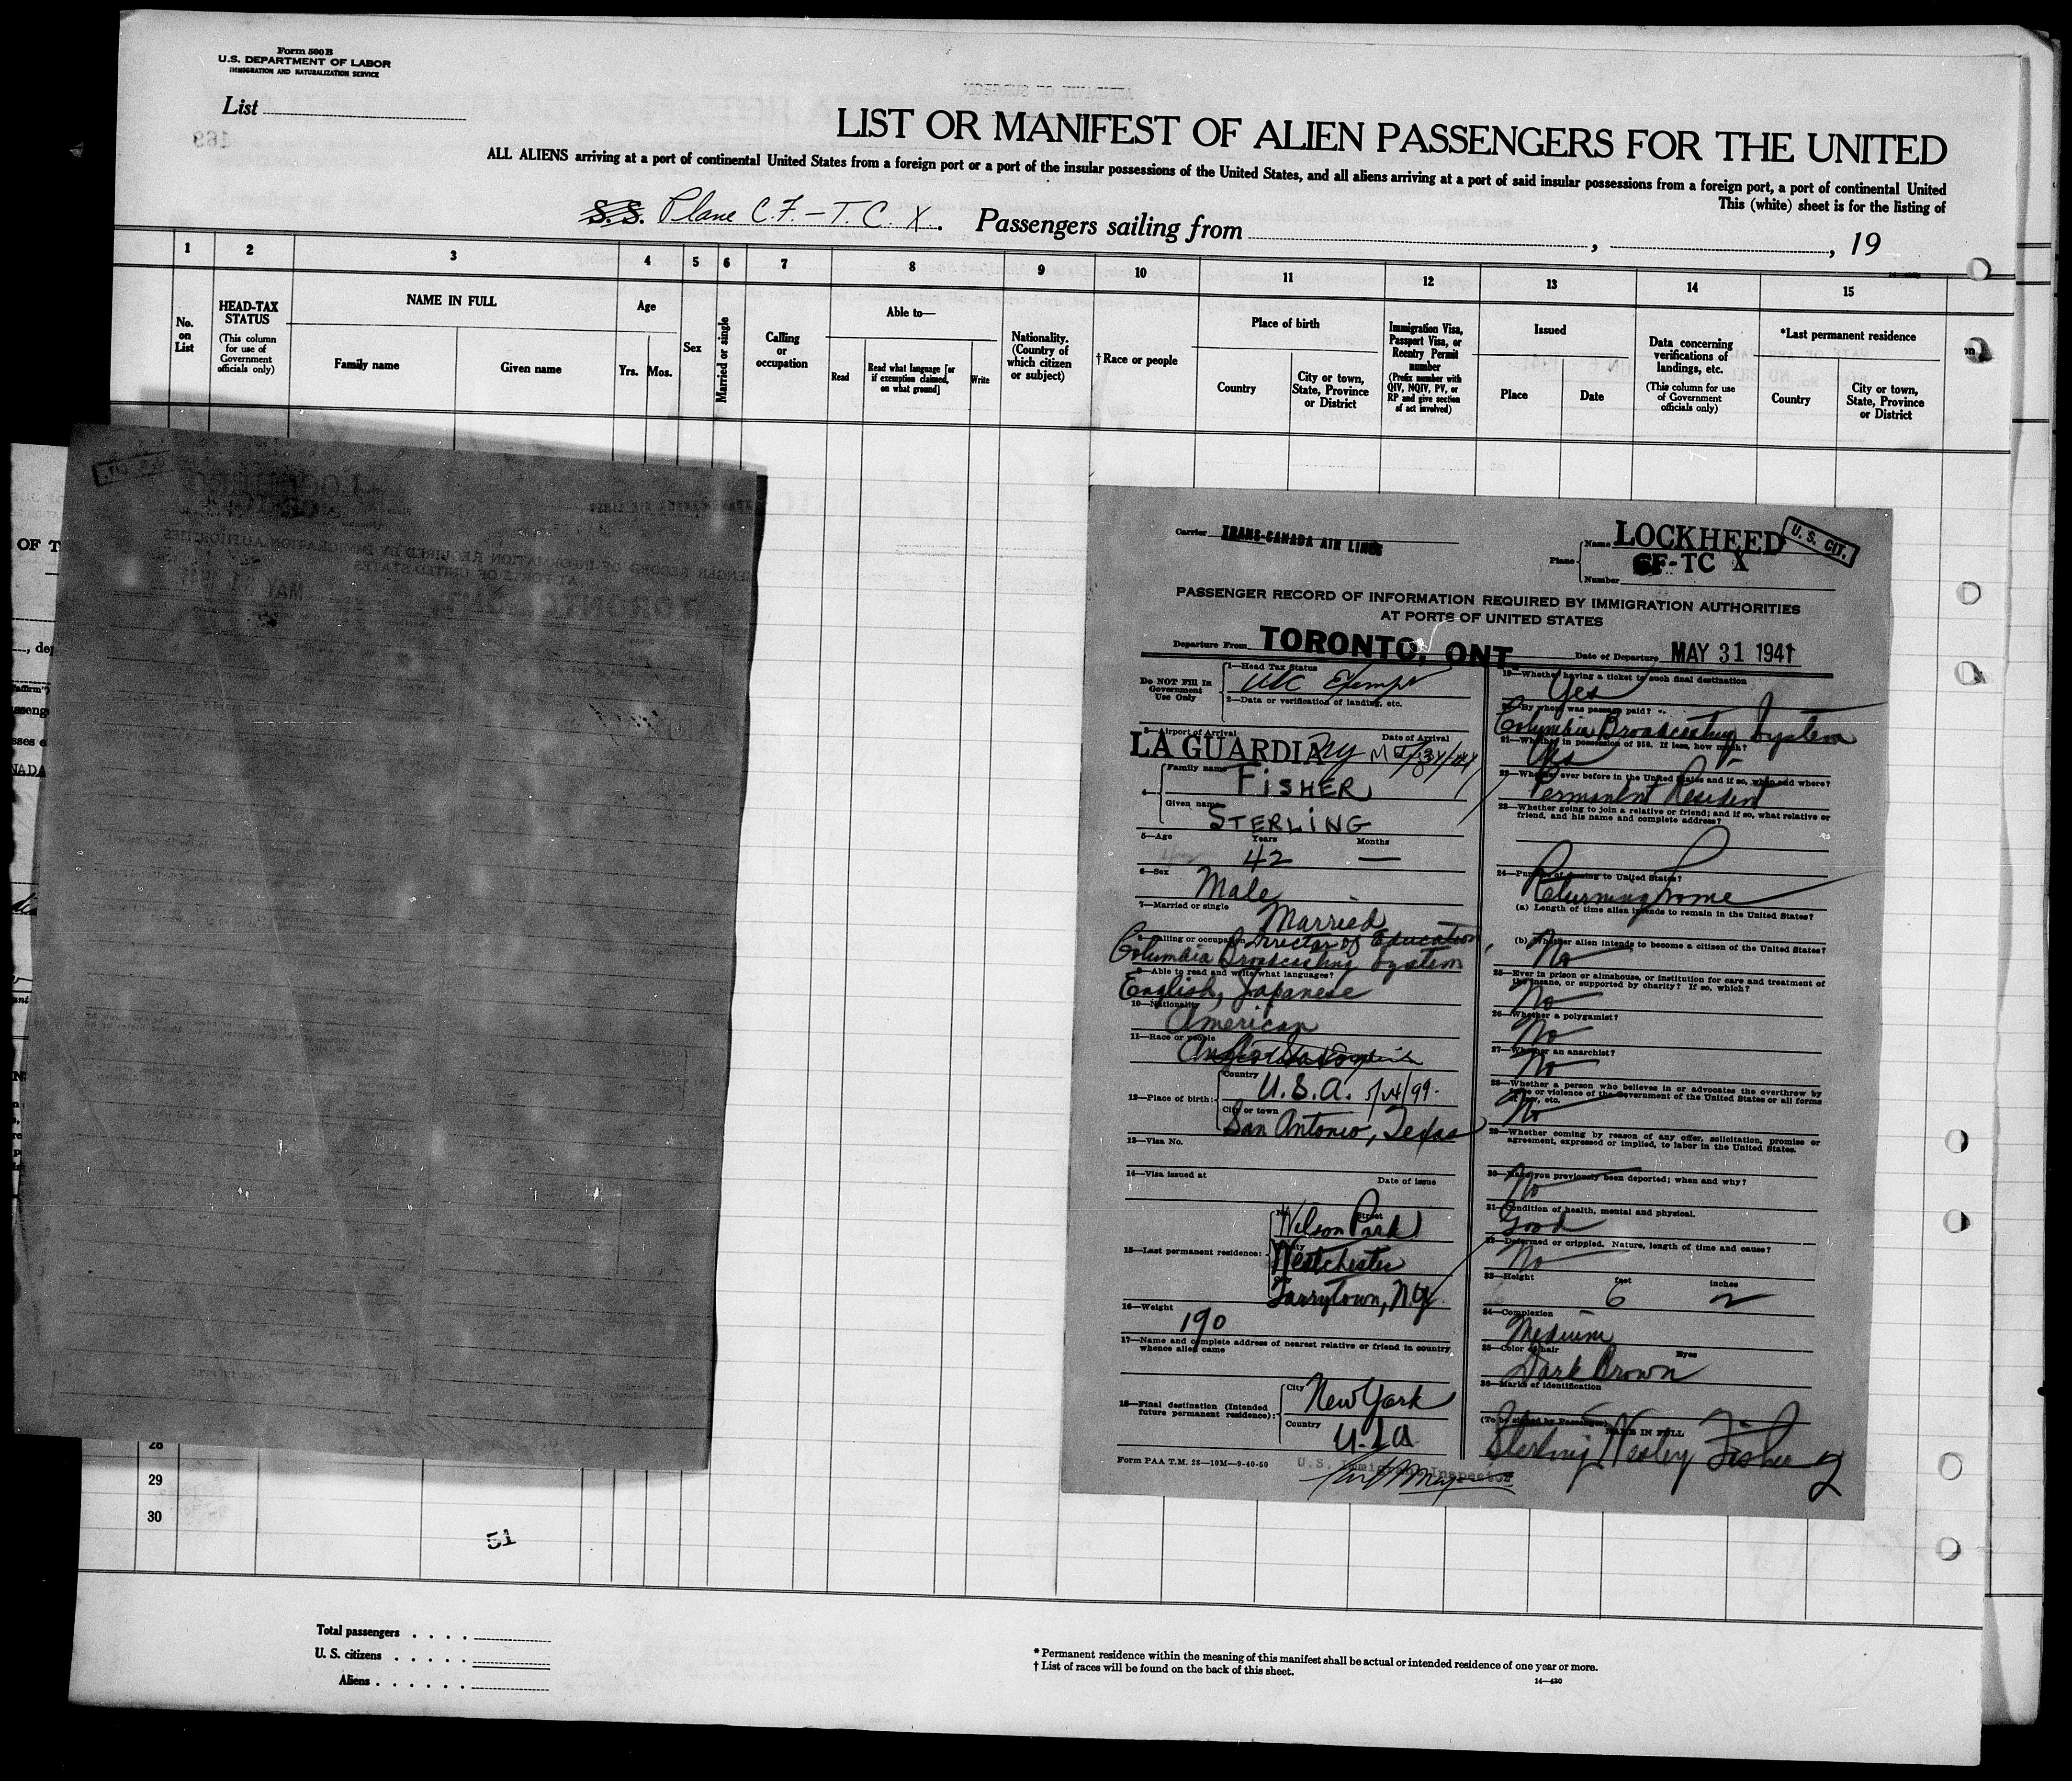 Form 500 B
U.S. DEPARTMENT OF LABOR
IMMIGRATION AND NATURALIZATION SERVICE
List
LIST OR MANIFEST OF ALIEN PASSENGERS FOR THE UNITED
ALL ALIENS arriving at a port of continental United States from a foreign port or a port of the insular possessions of the United States, and all aliens arriving at a port of said insular possessions from a foreign port, a port of continental United
This (white) sheet is for the listing of
S.S. Plane C.F.-T.C.X. Passengers sailing from , , 19
1 2 3 4 5 6 7 8 9 10 11 12 13 14 15
No. on List
HEAD-TAX STATUS
(This column for use of Government officials only)
NAME IN FULL
Family name
Given name
Age
Yrs. Mos.
Sex
Married or single
Calling or occupation
Able to—
Read
Read what language [or if exemption claimed, on what ground]
Write
Nationality. (Country of which citizen or subject)
†Race or people
Place of birth
Country
City or town, State, Province or District
Immigration Visa, Passport Visa, or Reentry Permit number
(Prefix number with QIV, NQIV, PV, or RP and give section of act involved)
Issued
Place
Date
Data concerning verifications of landings, etc.
(This column for use of Government officials only)
*Last permanent residence
Country
City or town, State, Province or District
Carrier TRANS-CANADA AIR LINES
Plane Name LOCKHEED
Number CF-TC X
U. S. CIT.
PASSENGER RECORD OF INFORMATION REQUIRED BY IMMIGRATION AUTHORITIES
AT PORTS OF UNITED STATES
Departure From TORONTO, ONT.
Date of Departure MAY 31 1941
Do NOT Fill In Government Use Only
1—Head Tax Status
USC Exempt
2—Data or verification of landing, etc.
3—Airport of Arrival
Date of Arrival
LA GUARDIA NY
4— Family name FISHER
Given name STERLING
5—Age Years Months
42 —
6—Sex Male
7—Married or single Married
8—Calling or occupation Director of Education
Columbia Broadcasting System
9—Able to read and write what languages?
English, Japanese
10—Nationality
American
11—Race or people
12—Place of birth: Country U.S.A. 5/24/99.
City or town San Antonio, Texas
13—Visa No.
14—Visa issued at Date of issue
15—Last permanent residence: No. Street Wilson Park
Westchester
Tarrytown, N.Y.
16—Weight 190
17—Name and complete address of nearest relative or friend in country whence alien came
18—Final destination (Intended future permanent residence): City New York
Country U.S.A
Form PAA T.M. 28—10M—9-40-50
U.S. Immigrant Inspector
19—Whether having a ticket to such final destination
Yes
20—By whom was passage paid?
Columbia Broadcasting System
21—Whether in possession of $50. If less, how much?
Yes
22—Whether ever before in the United States and if so, when and where?
Permanent Resident
23—Whether going to join a relative or friend; and if so, what relative or friend, and his name and complete address?
24—Purpose of coming to United States?
Returning home
(a) Length of time alien intends to remain in the United States?
(b) Whether alien intends to become a citizen of the United States?
No
25—Ever in prison or almshouse, or institution for care and treatment of the insane, or supported by charity? If so, which?
No
26—Whether a polygamist?
No
27—Whether an anarchist?
No
28—Whether a person who believes in or advocates the overthrow by force or violence of the Government of the United States or all forms of law, etc.
No
29—Whether coming by reason of any offer, solicitation, promise or agreement, expressed or implied, to labor in the United States.
30—Have you previously been deported; when and why?
No
31—Condition of health, mental and physical.
Good
32—Deformed or crippled. Nature, length of time and cause?
No
33—Height feet inches
6 2
34—Complexion
Medium
35—Color of hair Eyes
Dark Brown
36—Marks of identification
(To be signed by Passenger)
NAME IN FULL
Sterling Wesley Fisher
28
29
30
51
Total passengers
U. S. citizens
Aliens
* Permanent residence within the meaning of this manifest shall be actual or intended residence of one year or more.
† List of races will be found on the back of this sheet.
14—430